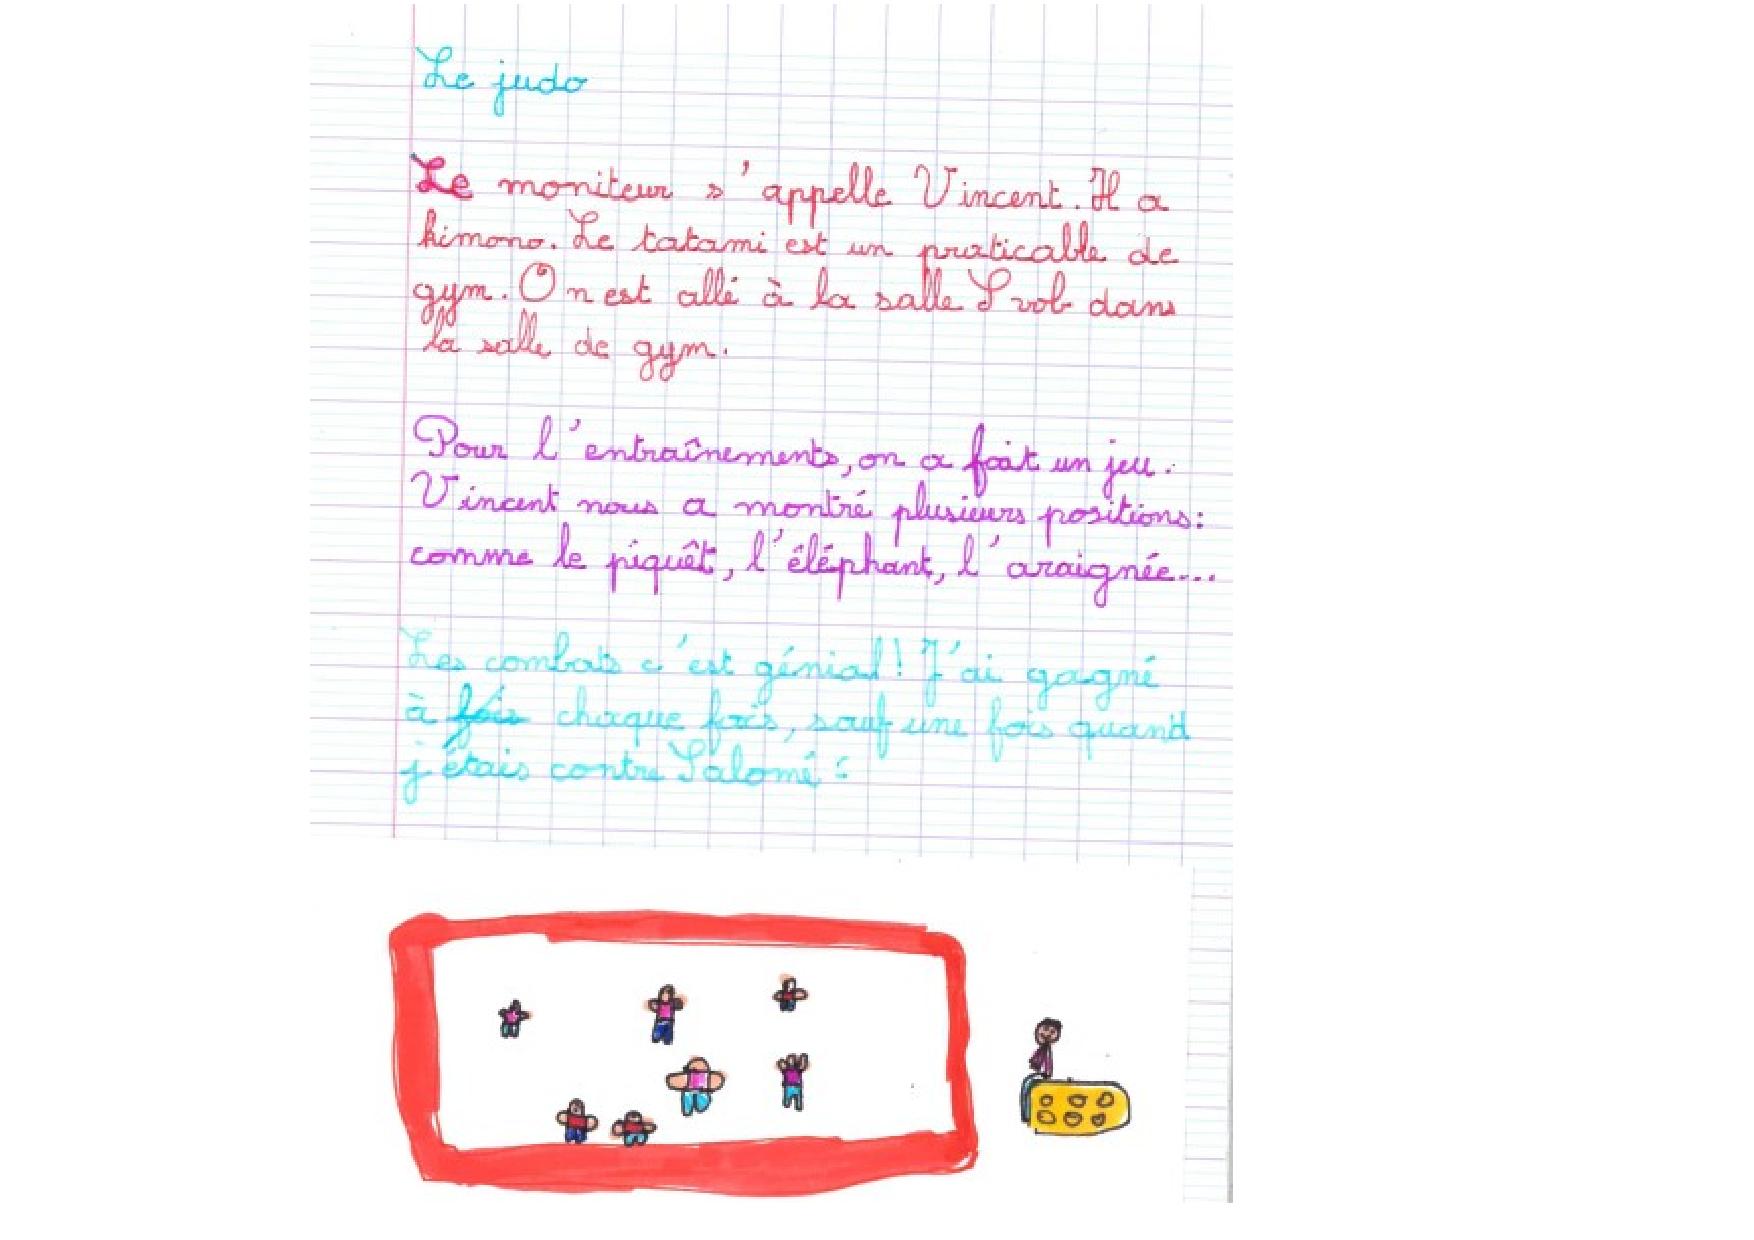 Le judo
Le moniteur s'appelle Vincent. Il a
kimono. Le tatami est un praticable de
gym. On est allé à la salle Srob dans
la salle de gym.
Pour l'entraînements, on a fait un jeu.
Vincent nous a montré plusieurs positions:
comme le piquêt, l'éléphant, l'araignée...
Les combats c'est génial! J'ai gagné
à chaque fois, sauf une fois quand
j'étais contre Salomé :